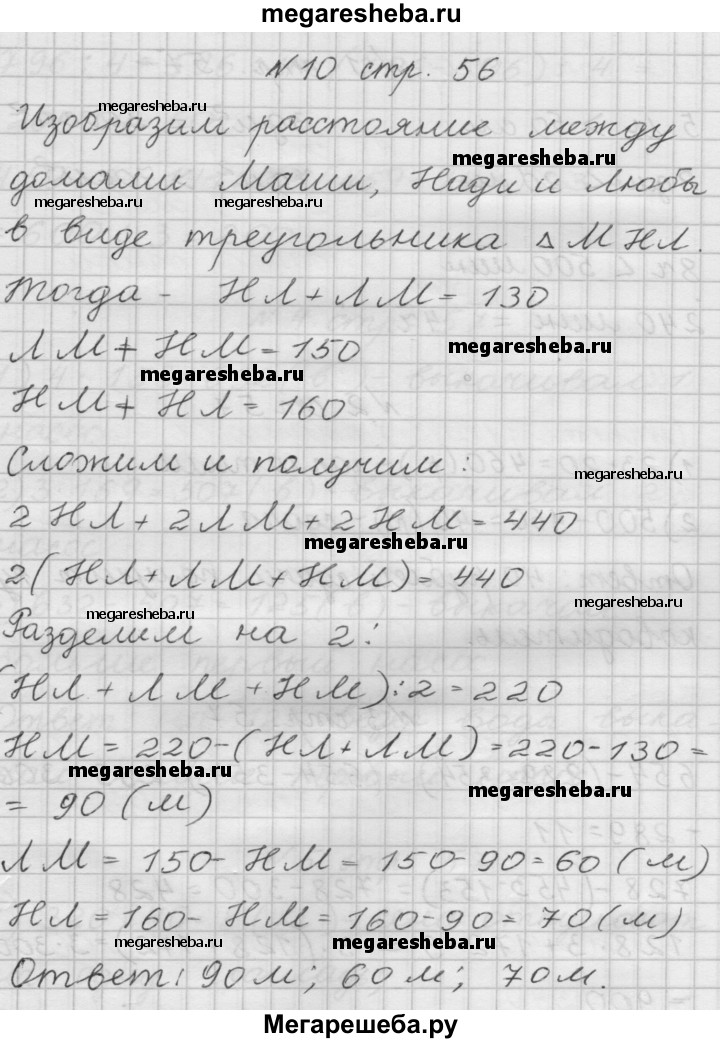 megaresheba.ru
N10 стр. 56
megaresheba.ru
Изобразим расстояние между
megaresheba.ru
домами Маши, Нади и Любы
megaresheba.ru megaresheba.ru megaresheba.ru
в виде треугольника Δ МНЛ.
Тогда - НЛ + ЛМ = 130
ЛМ + НМ = 150
megaresheba.ru
megaresheba.ru
НМ + НЛ = 160
Сложим и получим:
megaresheba.ru
2 НЛ + 2 ЛМ + 2 НМ = 440
megaresheba.ru
2 ( НЛ + ЛМ + НМ ) = 440
megaresheba.ru
megaresheba.ru
Разделим на 2:
(НЛ + ЛМ + НМ):2 = 220
НМ = 220-( НЛ + ЛМ ) = 220-130 =
megaresheba.ru
megaresheba.ru
= 90 (м)
ЛМ = 150- НМ = 150-90=60 (м)
НЛ = 160- НМ = 160-90= 70 (м)
megaresheba.ru megaresheba.ru megaresheba.ru
Ответ: 90м; 60м; 70м.
Мегарешеба.ру